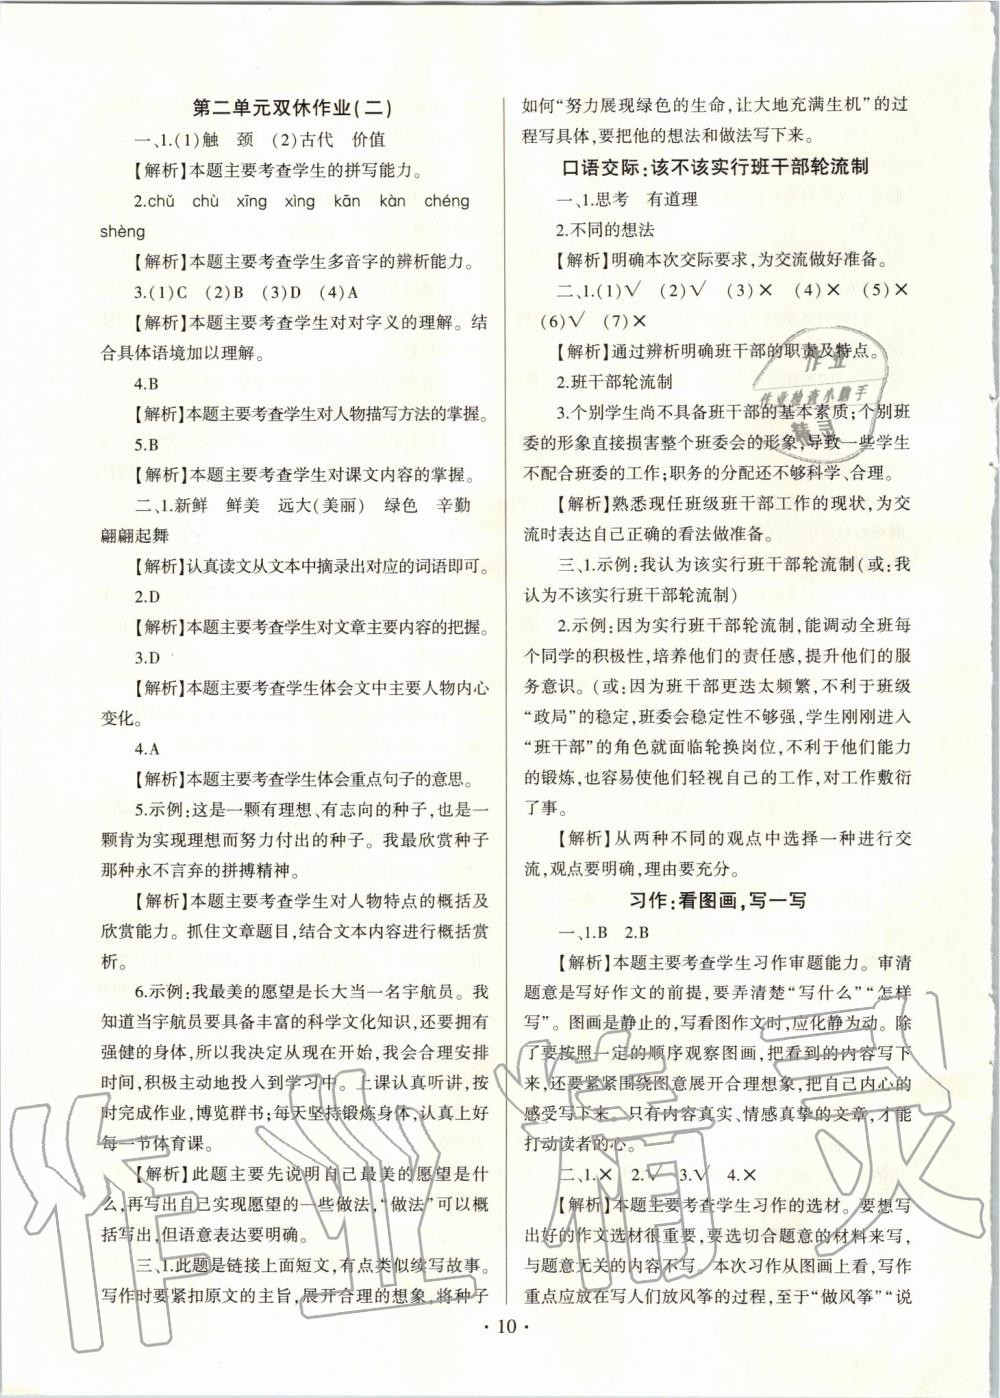 第二单元双休作业(二)
一、1.(1)触 颈 (2)古代 价值
【解析】本题主要考查学生的拼写能力。
2.chǔ chù xīng xìng kān kàn chéng
shèng
【解析】本题主要考查学生多音字的辨析能力。
3.(1)C (2)B (3)D (4)A
【解析】本题主要考查学生对对字义的理解。结
合具体语境加以理解。
4.B
【解析】本题主要考查学生对人物描写方法的掌握。
5.B
【解析】本题主要考查学生对课文内容的掌握。
二、1.新鲜 鲜美 远大(美丽) 绿色 辛勤
翩翩起舞
【解析】认真读文从文本中摘录出对应的词语即可。
2.D
【解析】本题主要考查学生对文章主要内容的把握。
3.D
【解析】本题主要考查学生体会文中主要人物内心
变化。
4.A
【解析】本题主要考查学生体会重点句子的意思。
5.示例:这是一颗有理想、有志向的种子,也是一
颗肯为实现理想而努力付出的种子。我最欣赏种子
那种永不言弃的拼搏精神。
【解析】本题主要考查学生对人物特点的概括及
欣赏能力。抓住文章题目,结合文本内容进行概括赏
析。
6.示例:我最美的愿望是长大当一名宇航员。我
知道当宇航员要具备丰富的科学文化知识,还要拥有
强健的身体,所以我决定从现在开始,我会合理安排
时间,积极主动地投入到学习中。上课认真听讲,按
时完成作业,博览群书;每天坚持锻炼身体,认真上好
每一节体育课。
【解析】此题主要先说明自己最美的愿望是什
么,再写出自己实现愿望的一些做法,“做法”可以概
括写出,但语意表达要明确。
三、1.此题是链接上面短文,有点类似续写故事。
写作时要紧扣原文的主旨,展开合理的想象,将种子
如何“努力展现绿色的生命,让大地充满生机”的过
程写具体,要把他的想法和做法写下来。
口语交际:该不该实行班干部轮流制
一、1.思考 有道理
2.不同的想法
【解析】明确本次交际要求,为交流做好准备。
二、1.(1)√ (2)√ (3)× (4)× (5)×
(6)√ (7)×
【解析】通过辨析明确班干部的职责及特点。
2.班干部轮流制
3.个别学生尚不具备班干部的基本素质;个别班
委的形象直接损害整个班委会的形象,导致一些学生
不配合班委的工作;职务的分配还不够科学、合理。
【解析】熟悉现任班级班干部工作的现状,为交
流时表达自己正确的看法做准备。
三、1.示例:我认为该实行班干部轮流制(或:我
认为不该实行班干部轮流制)
2.示例:因为实行班干部轮流制,能调动全班每
个同学的积极性,培养他们的责任感,提升他们的服
务意识。(或:因为班干部更迭太频繁,不利于班级
“政局”的稳定,班委会稳定性不够强,学生刚刚进入
“班干部”的角色就面临轮换岗位,不利于他们能力
的锻炼,也容易使他们轻视自己的工作,对工作敷衍
了事。
【解析】从两种不同的观点中选择一种进行交
流,观点要明确,理由要充分。
习作:看图画,写一写
一、1.B 2.B
【解析】本题主要考查学生习作审题能力。审清
题意是写好作文的前提,要弄清楚“写什么”“怎样
写”。图画是静止的,写看图作文时,应化静为动。除
了要按照一定的顺序观察图画,把看到的内容写下
来,还要紧紧围绕图意展开合理想象,把自己内心的
感受写下来。只有内容真实、情感真挚的文章,才能
打动读者的心。
二、1.× 2.√ 3.√ 4.×
【解析】本题主要考查学生习作的选材。要想写
出好的作文选材很重要,要选切合题意的材料来写,
与题意无关的内容不写。本次习作从图画上看,写作
重点应放在写人们放风筝的过程,至于“做风筝”“说
作业
作业检查小助手
精灵
作业精灵
· 10 ·